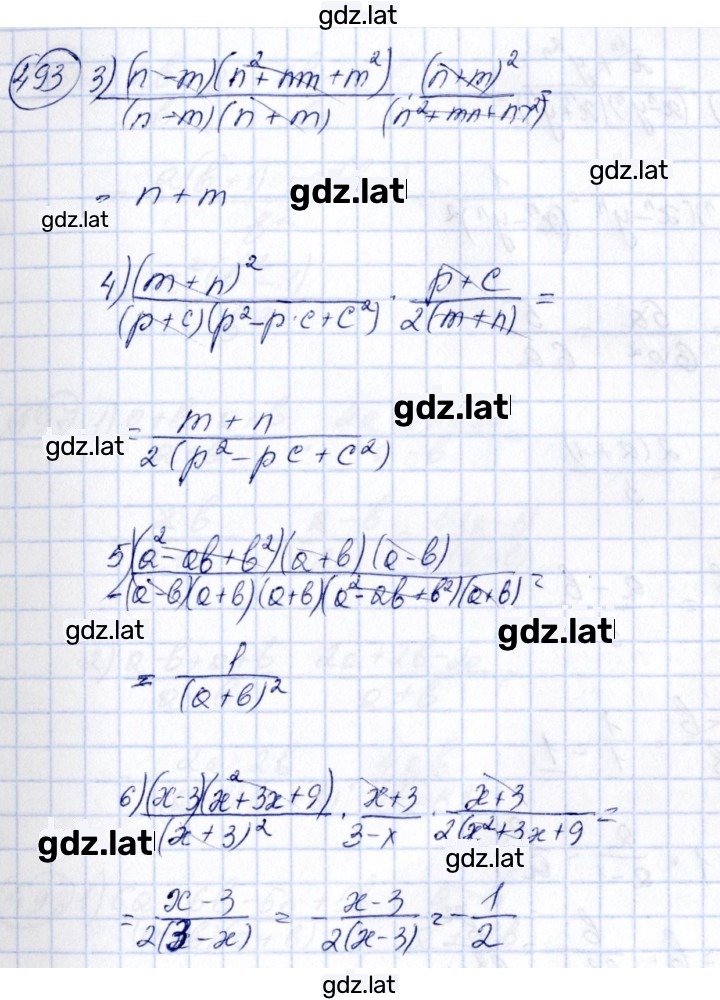 gdz.lat
493 3) (n-m)(n²+nm+m²)/(n-m)(n+m) · (n+m)²/(n²+mn+n²)=
= n+m
gdz.lat
gdz.lat
gdz.lat
4) (m+n)²/(p+c)(p²-p·c+c²) · p+c/2(m+n) =
gdz.lat
= m+n/2(p²-pc+c²)
gdz.lat
5) (a²-ab+b²)(a+b)(a-b)/(a-b)(a+b)(a+b)(a²-ab+b²)(a+b) =
gdz.lat
gdz.lat
= 1/(a+b)²
6) (x-3)(x²+3x+9)/(x+3)² · x+3/3-x · x+3/2(x²+3x+9 =
gdz.lat
gdz.lat
= x-3/2(3-x) = - x-3/2(x-3) = - 1/2
gdz.lat